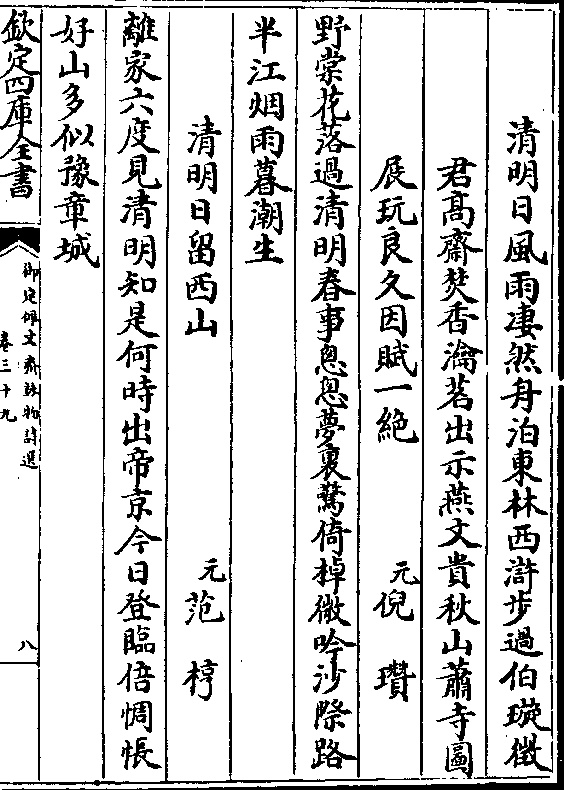 清明日風雨凄然舟泊東林西滸步過伯璇徵
君髙齋焚香瀹茗出示燕文貴秋山蕭寺圖
展玩良久因賦一絶 元倪瓚
野棠花落過清明春事悤悤夢裏驚倚棹微吟沙際路
半江烟雨暮潮生
清明日留西山 元范梈
離家六度見清明知是何時出帝京今日登臨倍惆悵
好山多似豫章城
欽定四庫全書
御定佩文齋詠物詩選
卷三十九
八